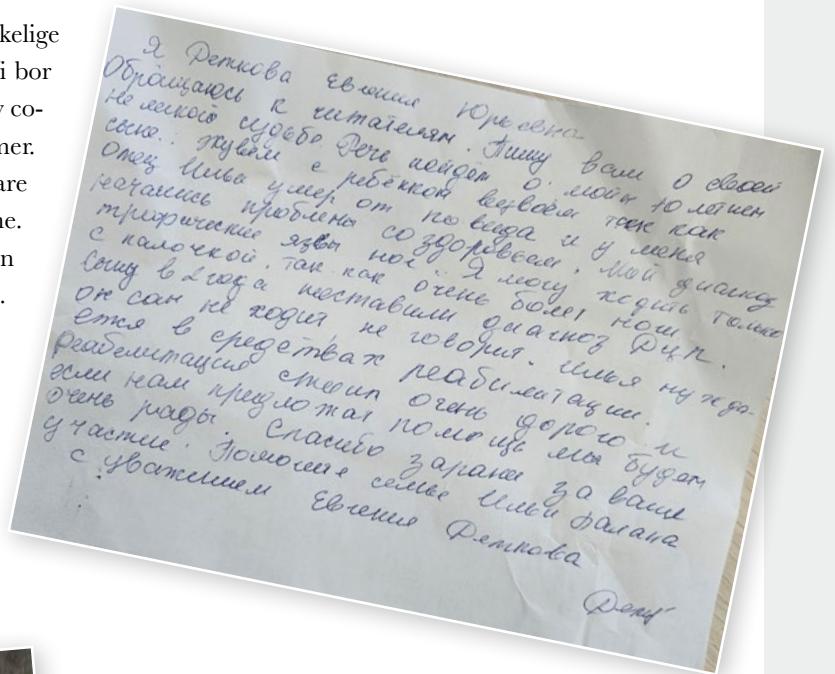 kelige
i bor
v co-
ner.
are
ne.
n
.
Я Деткова Евгения Юрьевна
Обращаюсь к читателям. Пишу вам о своей
не легкой судьбе Речь пойдёт о моём 10 летнем
сыне. Живём с ребёнком вдвоём так как
Отец Ильи умер от ковида и у меня
начались проблемы со здоровьем. Мой диагноз
трофические язвы ног. Я могу ходить только
с палочкой. так как очень болят ноги.
Сыну в 2 года поставили диагноз ДЦП.
он сам не ходит не говорит. Илья нужда-
ется в средствах реабилитации.
Реабелитация стоит очень дорого и
если нам предложат помощь мы будем
очень рады. Спасибо зарание за ваше
участие. Помогите семье Ильи Балана
с уважением Евгения Деткова